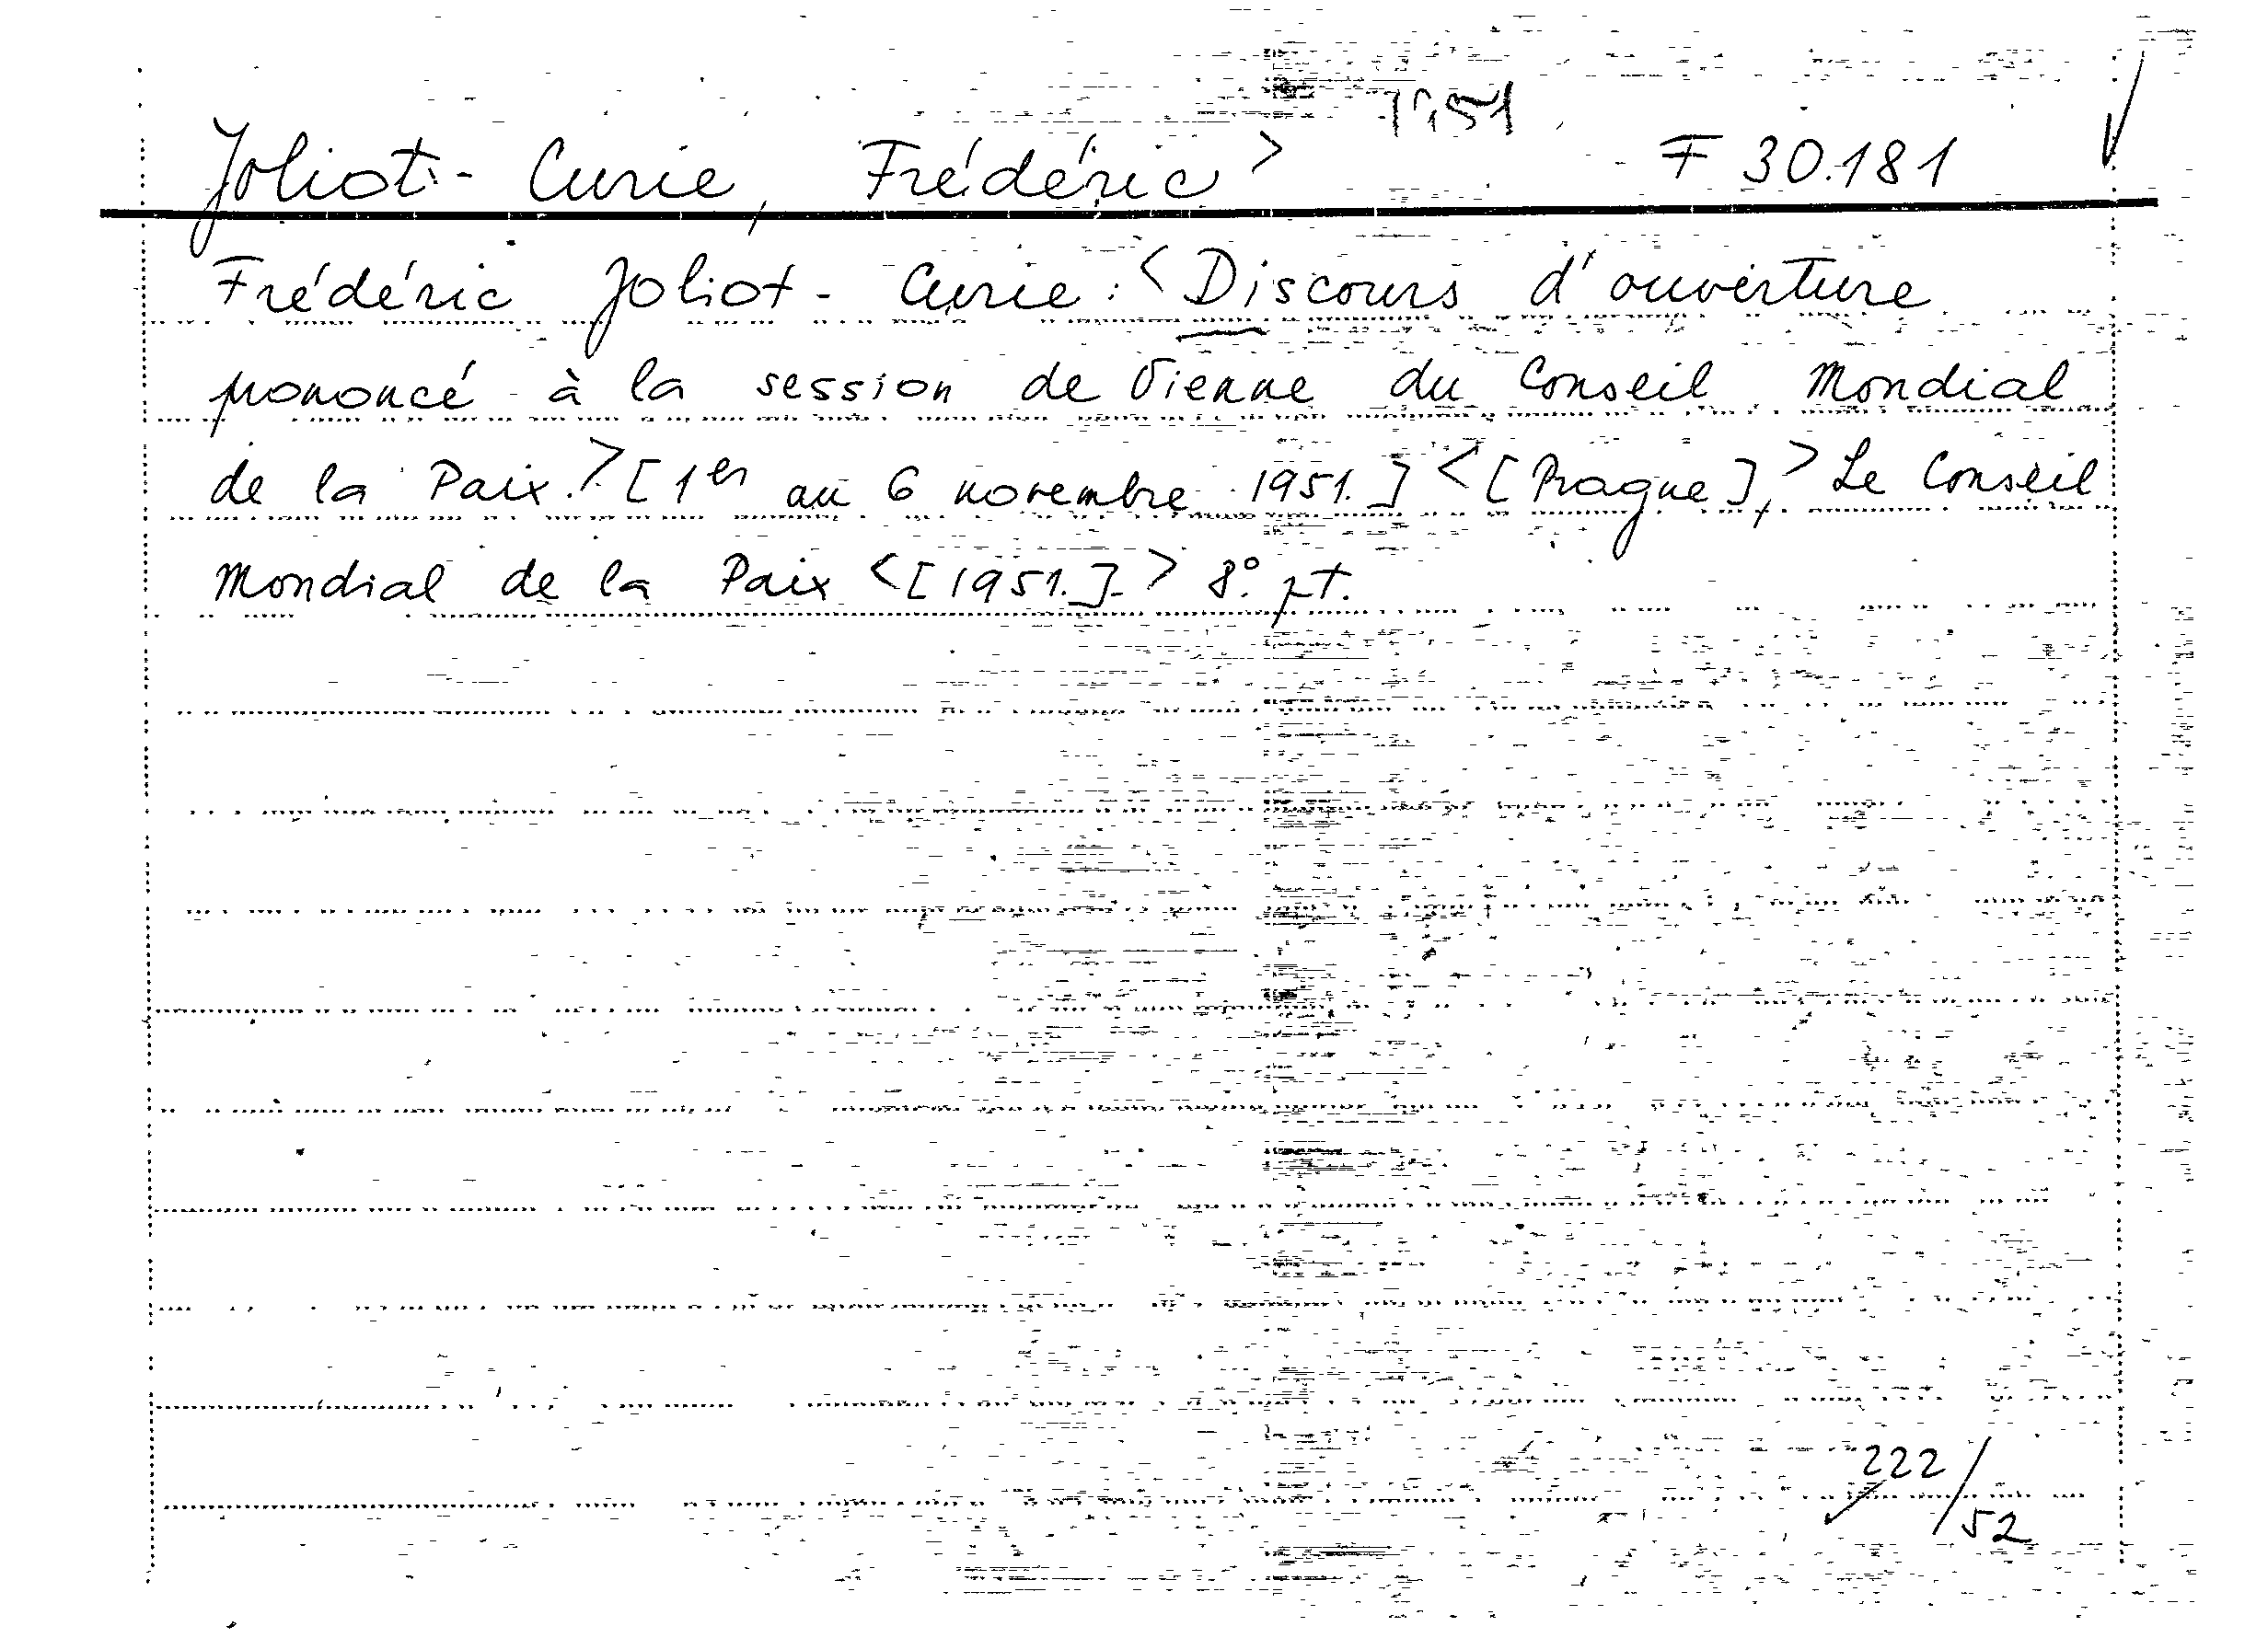 1951
Joliot-Curie, Frédéric > F 30.181
Frédéric Joliot-Curie: <Discours d'ouverture
prononcé à la session de Vienne du Conseil Mondial
de la Paix.> [1er au 6 novembre 1951.] <[Prague],> Le Conseil
Mondial de la Paix <[1951.]> 8° pt.
222/52